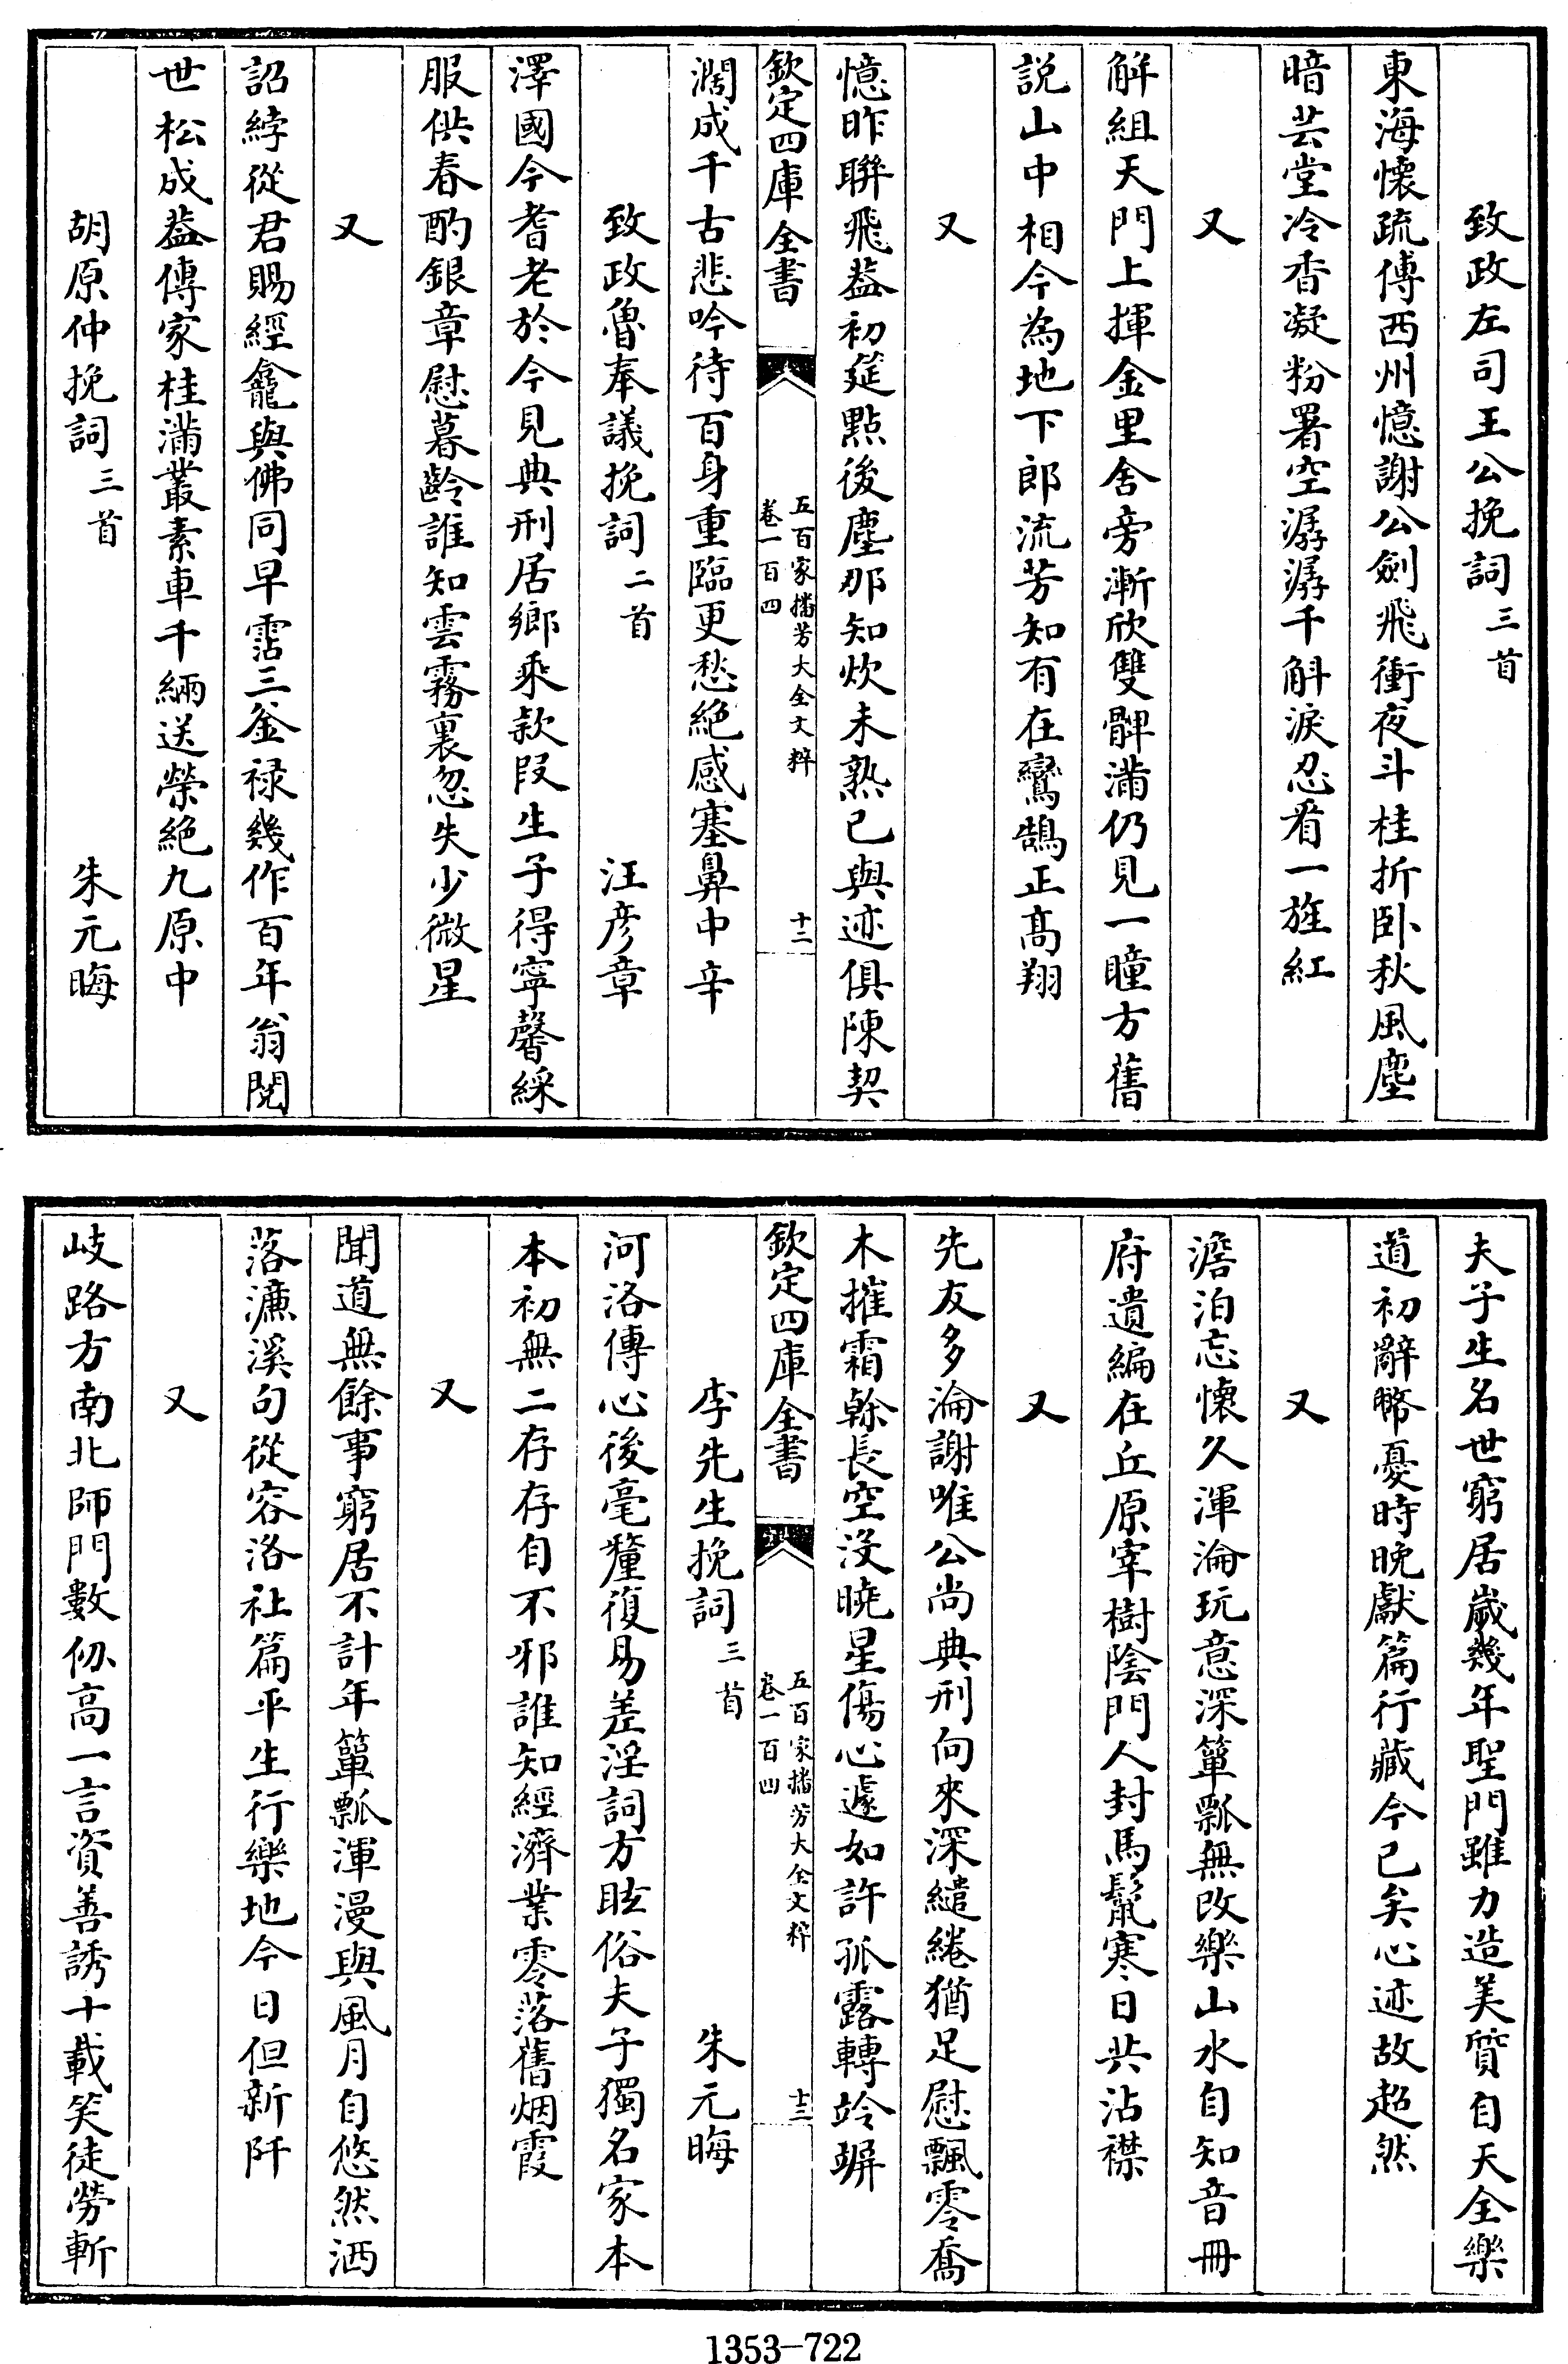 致政左司王公挽詞三首
東海懷疏傅西州憶謝公劍飛衝夜斗桂折卧秋風塵
暗芸堂冷香凝粉署空潺潺千斛淚忍看一旌紅
又
解組天門上揮金里舍旁漸欣雙髀滿仍見一瞳方舊
説山中相今為地下郎流芳知有在鸞鵠正高翔
又
憶昨聨飛葢初筵㸃後塵那知炊未熟已與迹俱陳契
欽定四庫全書
五百家播芳大全文粹
卷一百四
十二
濶成千古悲吟待百身重臨更愁絶感塞鼻中辛
致政魯奉議挽詞二首
汪彦章
澤國今耆老於今見典刑居鄉乘款段生子得寧馨綵
服供春酌銀章慰暮齡誰知雲霧裏忽失少微星
又
詔綍從君賜經龕與佛同早霑三釜禄幾作百年翁閲
世松成葢傳家桂滿叢素車千緉送榮絶九原中
胡原仲挽詞三首
朱元晦
夫子生名世窮居嵗幾年聖門雖力造美質自天全樂
道初辭幣憂時晩獻篇行藏今已矣心迹故超然
又
澹泊忘懷久渾淪玩意深簞瓢無改樂山水自知音冊
府遺編在丘原宰樹隂門人封馬鬛寒日共沾襟
又
先友多淪謝唯公尚典刑向來深繾綣猶足慰飄零喬
木摧霜榦長空没曉星傷心遽如許孤露轉竛竮
欽定四庫全書
五百家播芳大全文粹
卷一百四
十三
李先生挽詞三首
朱元晦
河洛傳心後毫釐復易差淫詞方眩俗夫子獨名家本
本初無二存存自不邪誰知經濟業零落舊烟霞
又
聞道無餘事窮居不計年簞瓢渾漫與風月自悠然洒
落濂溪句從容洛社篇平生行樂地今日但新阡
又
岐路方南北師門數仭高一言資善誘十載笑徒勞斬
1353-722